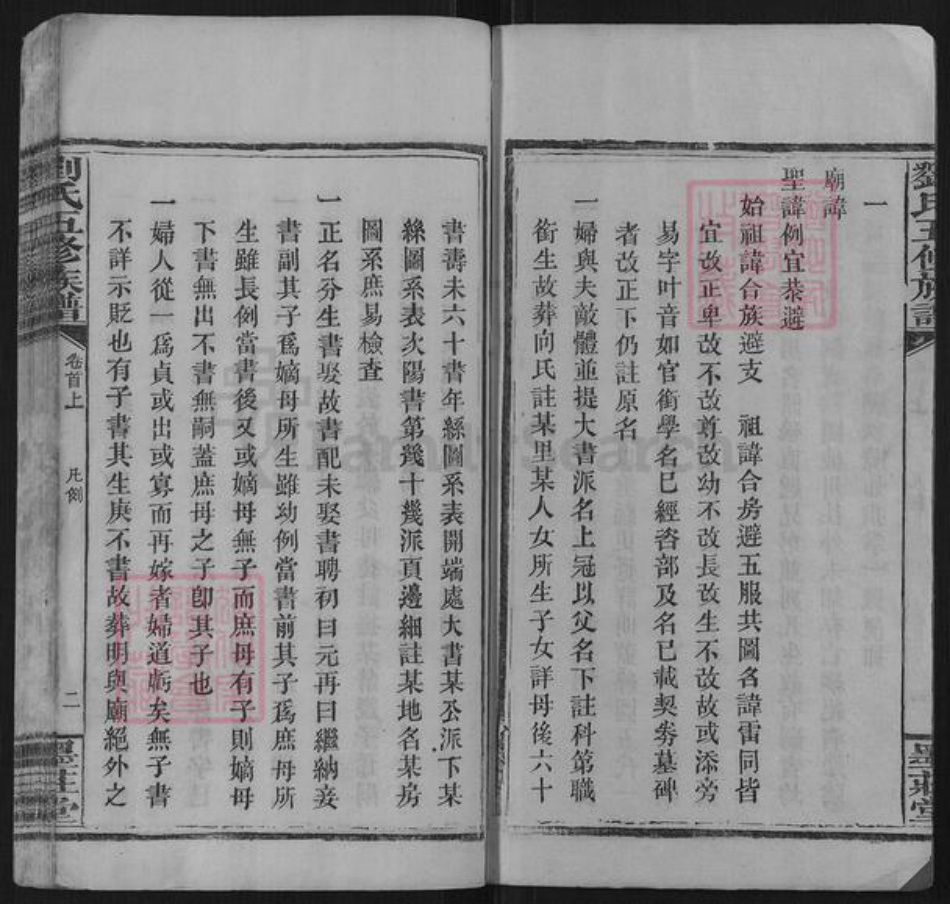 劉氏五修族譜
墨莊堂
一
廟諱
聖諱例宜恭避
始祖諱合族避支　祖諱合房避五服共圖名諱雷同皆
宜改正卑改不改尊改幼不改長改生不改故或添旁
易字叶音如官銜學名已經咨部及名已載契券墓碑
者改正下仍註原名
一婦與夫敵體並提大書派名上冠以父名下註科第職
銜生故葬向氏註某里某人女所生子女詳母後六十
書壽未六十書年絲圖系表開端處大書某公派下某
絲圖系表次陽書第幾十幾派頁邊細註某地名某房
圖系庶易檢查
一正名分生書娶故書配未娶書聘初曰元再曰繼納妾
書副其子爲嫡母所生雖幼例當書前其子爲庶母所
生雖長例當書後又或嫡母無子而庶母有子則嫡母
下書無出不書無嗣蓋庶母之子卽其子也
一婦人從一爲貞或出或寡而再嫁者婦道虧矣無子書
不詳示貶也有子書其生庚不書故葬明與廟絕外之
劉氏五修族譜
卷首上
凡例
二
墨莊堂
FamilySearch